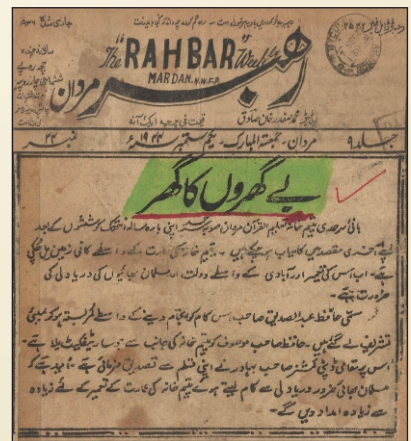 The "RAHBAR" Weekly
MARDAN. N.W.F.P.
رہبر
مردان
سالانہ چندہ
چھ روپے
ایڈیٹر محمد صفدر خان صادق
قیمت فی پرچہ ایک آنہ
جلد ۹
مردان۔ جمعتہ المبارک۔ یکم ستمبر ۱۹۴۴ء
نمبر ۲۴
بے گھروں کا گھر
بانی سرحدی یتیم خانہ تعلیم القرآن مردان صوبہ سرحد اپنی بارہ سالہ انتھک کوششوں کے بعد
اپنے آخری مقصد میں کامیاب ہو گئے ہیں۔ یتیم خانہ کی عمارت کے واسطے کافی زمین مل چکی
ہے۔ اب اس کی تعمیر اور آبادی کے واسطے دولت مند مسلمان بھائیوں کی دریا دلی کی
ضرورت ہے۔
مستی حافظ عبد الصدیق صاحب اس کام کو انجام دینے کے واسطے کمر بستہ ہو کر بمبئی
تشریف لے گئے ہیں۔ حافظ صاحب موصوف کو یتیم خانہ کی جانب سے سرٹیفکیٹ ملا ہے۔
اس پر مقامی ڈپٹی کمشنر صاحب بہادر نے اپنی قلم سے تصدیق فرمائی ہے۔ امید ہے کہ
مسلمان بھائی ضرور دریا دلی سے کام لیتے ہوئے یتیم خانہ کی عمارت کے تعمیر کے لئے زیادہ
سے زیادہ امداد دیں گے۔